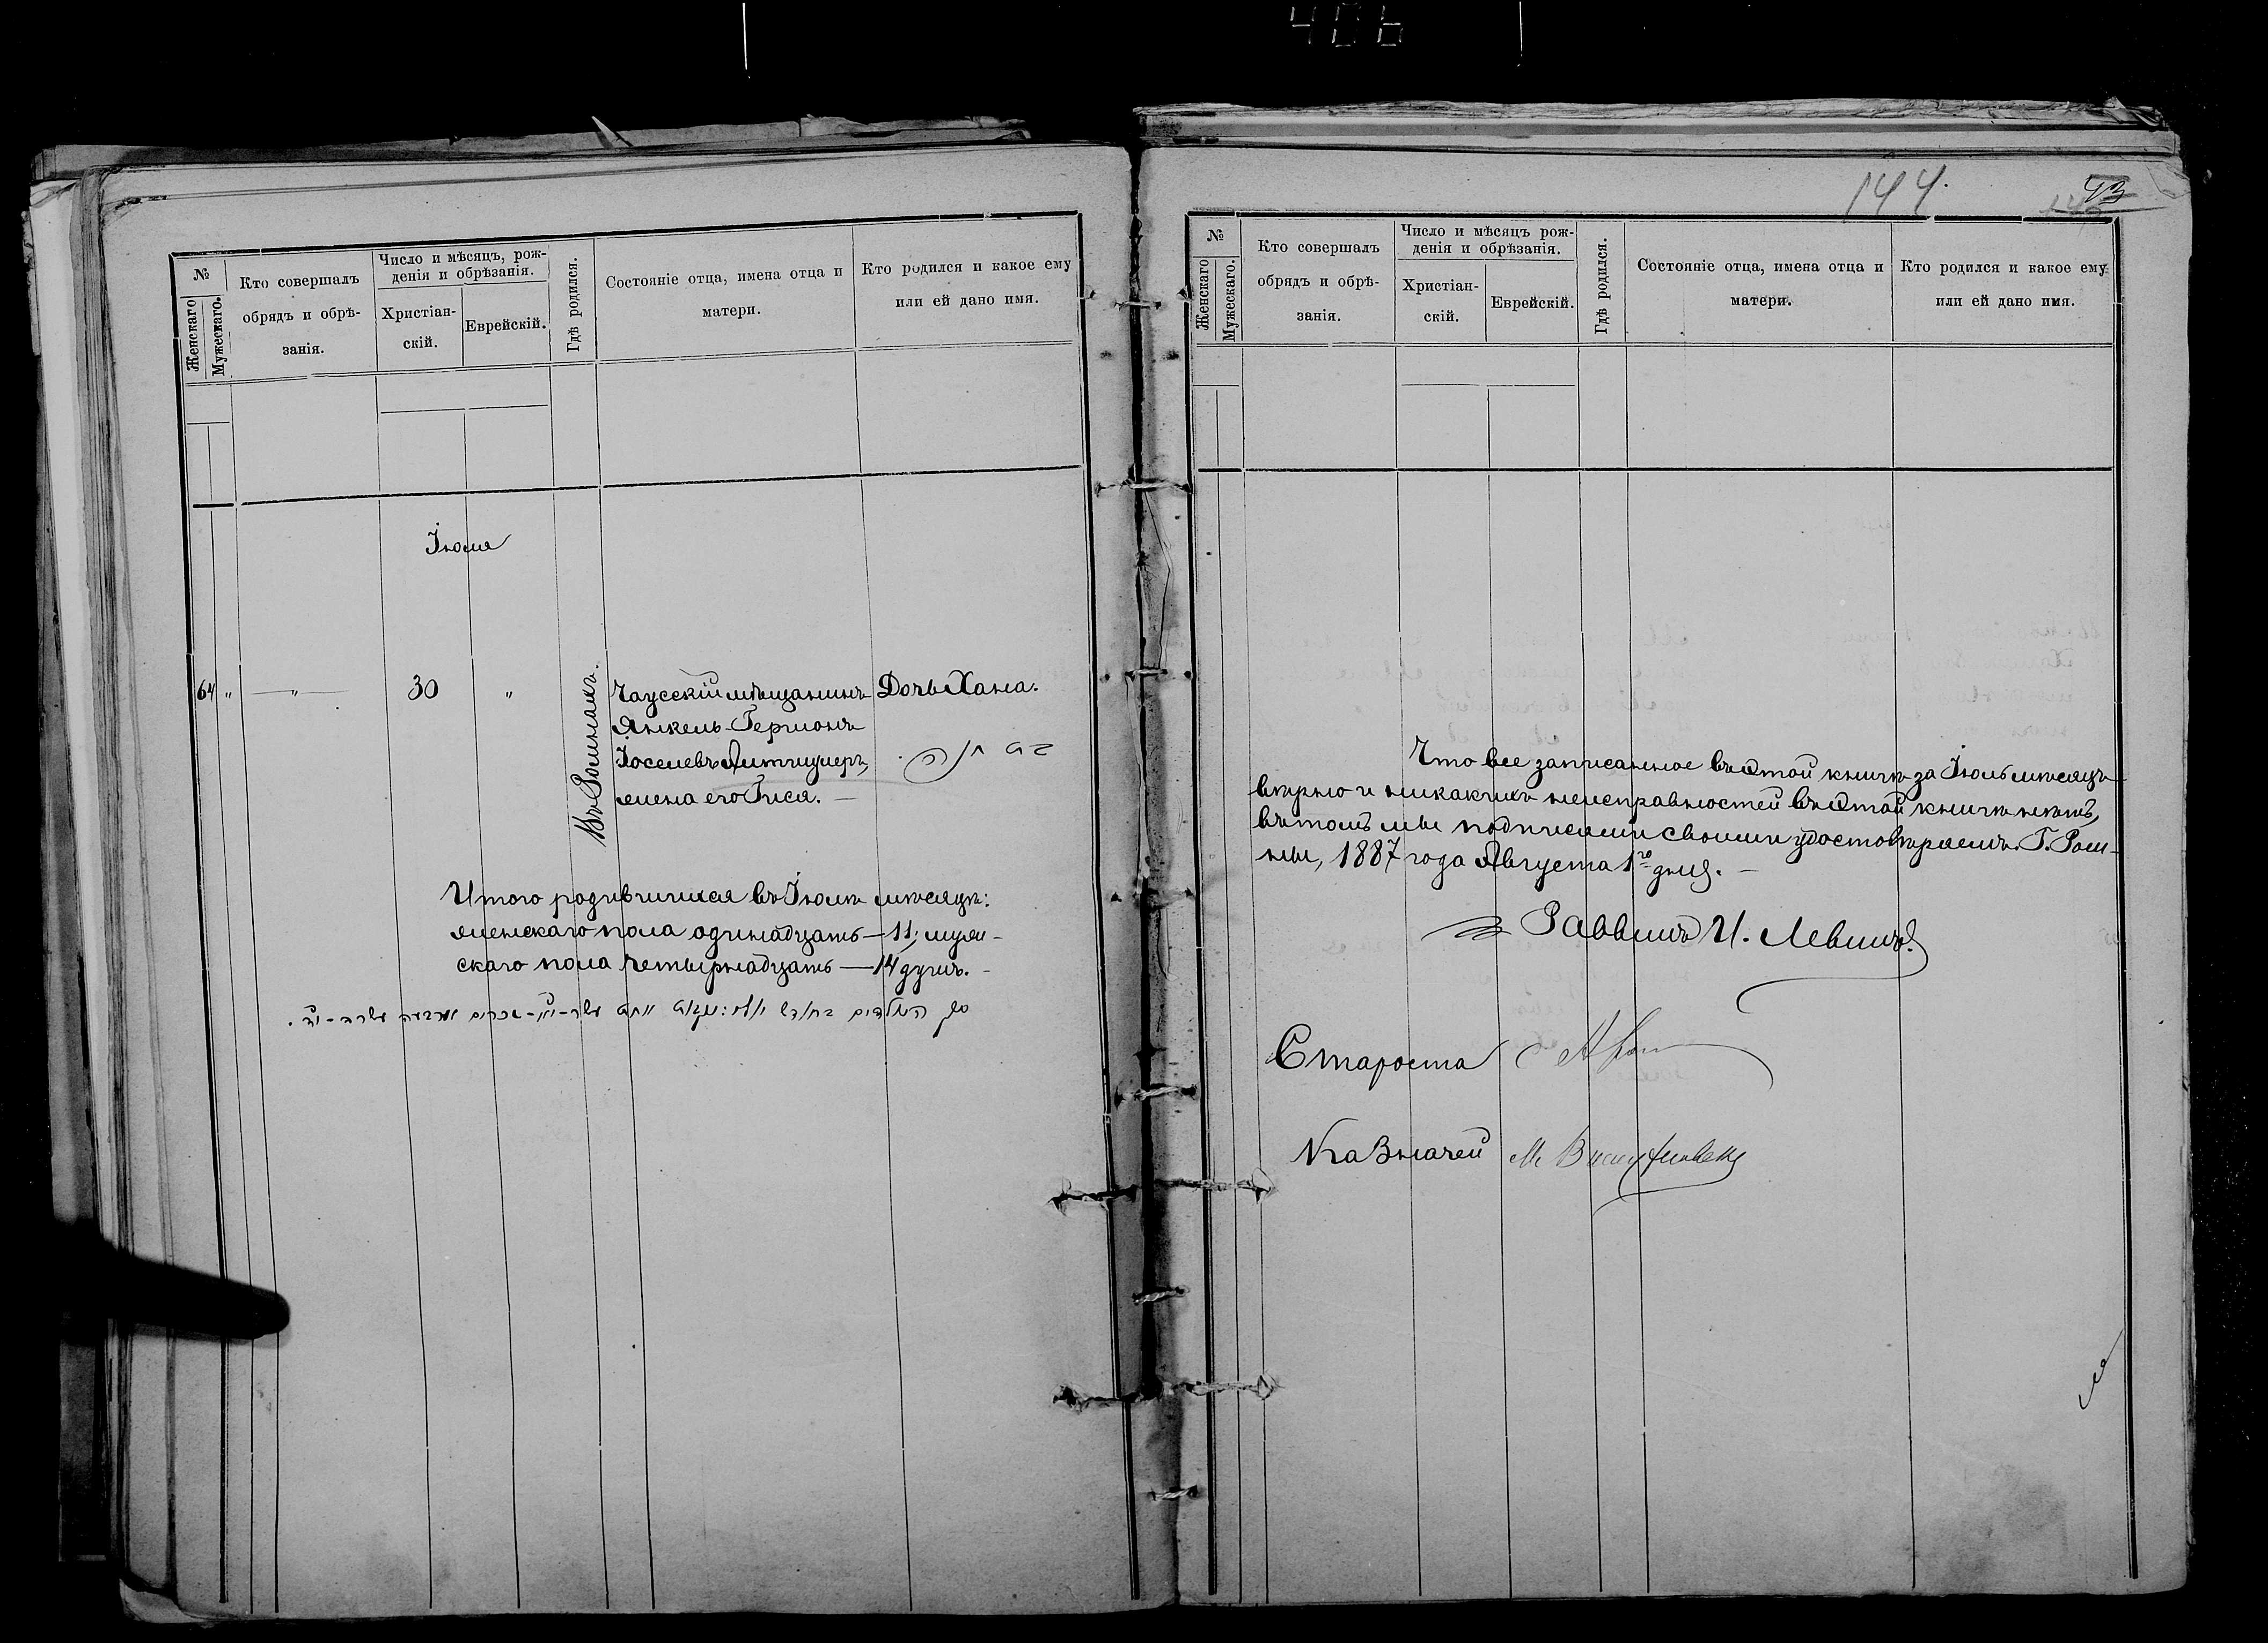 406
№
Женскаго
Мужескаго.
Кто совершалъ
обрядъ и обрѣ-
занія.
Число и мѣсяцъ, рож-
денія и обрѣзанія.
Христіан-
скій.
Еврейскій.
Гдѣ родился.
Состояніе отца, имена отца и
матери.
Кто родился и какое ему
или ей дано имя.
Іюля
64 „ — „ — 30 „
Въ Ромнахъ.
Чаусскій мѣщанинъ
Янкель-Гершонъ
Іоселевъ
жена его Гися. —
Дочь Хана.
בת חנה
Итого родившихся въ Іюлѣ мѣсяцѣ:
женскаго пола одинадцать — 11, муж-
скаго пола четырнадцать — 14 душъ. -
סך הנולדים בחודש יולי: נקבות אחת עשר - י״א - זכרים ארבעה עשר - י״ד.
144.
43
№
Женскаго
Мужескаго.
Кто совершалъ
обрядъ и обрѣ-
занія.
Число и мѣсяцъ рож-
денія и обрѣзанія.
Христіан-
скій.
Еврейскій.
Гдѣ родился.
Состояніе отца, имена отца и
матери.
Кто родился и какое ему
или ей дано имя.
Что все записанное въ этой книгѣ за Іюль мѣсяцъ
вѣрно и никакихъ неисправностей въ этой книгѣ нѣтъ,
въ томъ мы подписями своими удостовѣряемъ. Г. Ром-
ны, 1887 года Августа 1го дня. —
Раввинъ И. Левинъ.
Староста
Казначей М